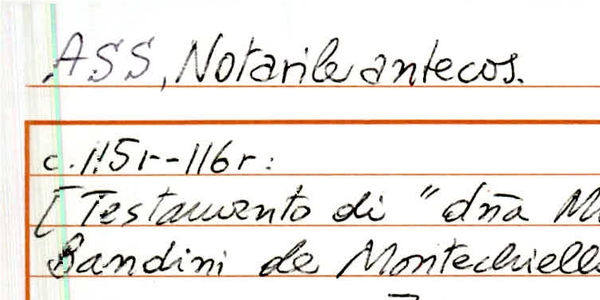 ASS, Notarile antecos.
c. 115r-116r:
[Testamento di "dña M
Bandini de Montechiello